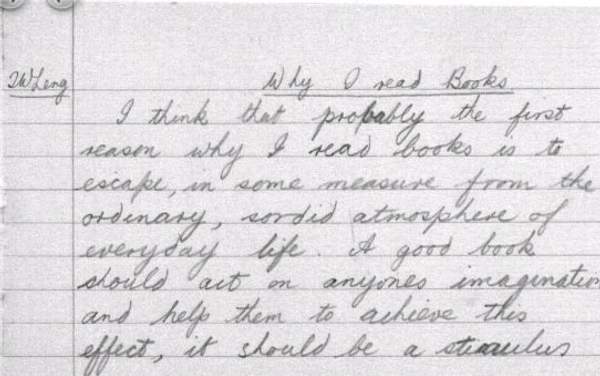 JW Leng
Why I read Books
I think that probably the first
reason why I read books is to
escape, in some measure from the
ordinary, sordid atmosphere of
everyday life. A good book
should act on anyones imagination
and help them to achieve this
effect, it should be a stimulus